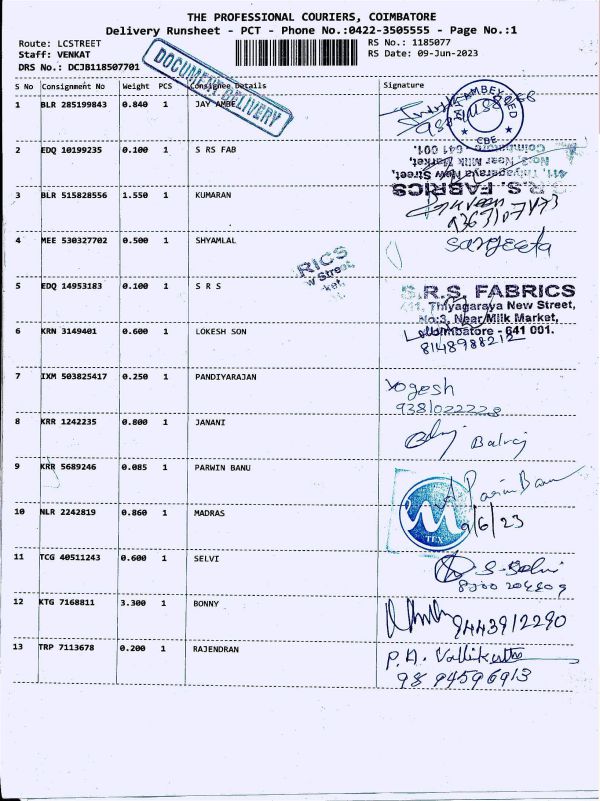 THE PROFESSIONAL COURIERS, COIMBATORE
Delivery Runsheet - PCT - Phone No.:0422-3505555 - Page No.:1
Route: LCSTREET RS No.: 1185077
Staff: VENKAT RS Date: 09-Jun-2023
DRS No.: DCJB118507701
DOCUMENT DELIVERY
S No Consignment No Weight PCS Consignee Details Signature
1 BLR 285199843 0.840 1 JAY AMBE
CBE
2 EDQ 10199235 0.100 1 S RS FAB
S.R.S. FABRICS
411, Thiyagaraya New Street,
No:3, Near Milk Market,
Coimbatore - 641 001.
3 BLR 515828556 1.550 1 KUMARAN
4 MEE 530327702 0.500 1 SHYAMLAL Sangeeta
RICS
w Street,
ket,
5 EDQ 14953183 0.100 1 S R S
S.R.S. FABRICS
411, Thiyagaraya New Street,
No:3, Near Milk Market,
Coimbatore - 641 001.
6 KRN 3149401 0.600 1 LOKESH SON
8148988212
7 IXM 503825417 0.250 1 PANDIYARAJAN Yogesh
9381022228
8 KRR 1242235 0.800 1 JANANI Balraj
9 KRR 5689246 0.085 1 PARWIN BANU A. Parvin Banu
10 NLR 2242819 0.860 1 MADRAS
M TEX 9/6/23
11 TCG 40511243 0.600 1 SELVI S. Selvi
12 KTG 7168811 3.300 1 BONNY 9443912290
13 TRP 7113678 0.200 1 RAJENDRAN P.A.
9894596913